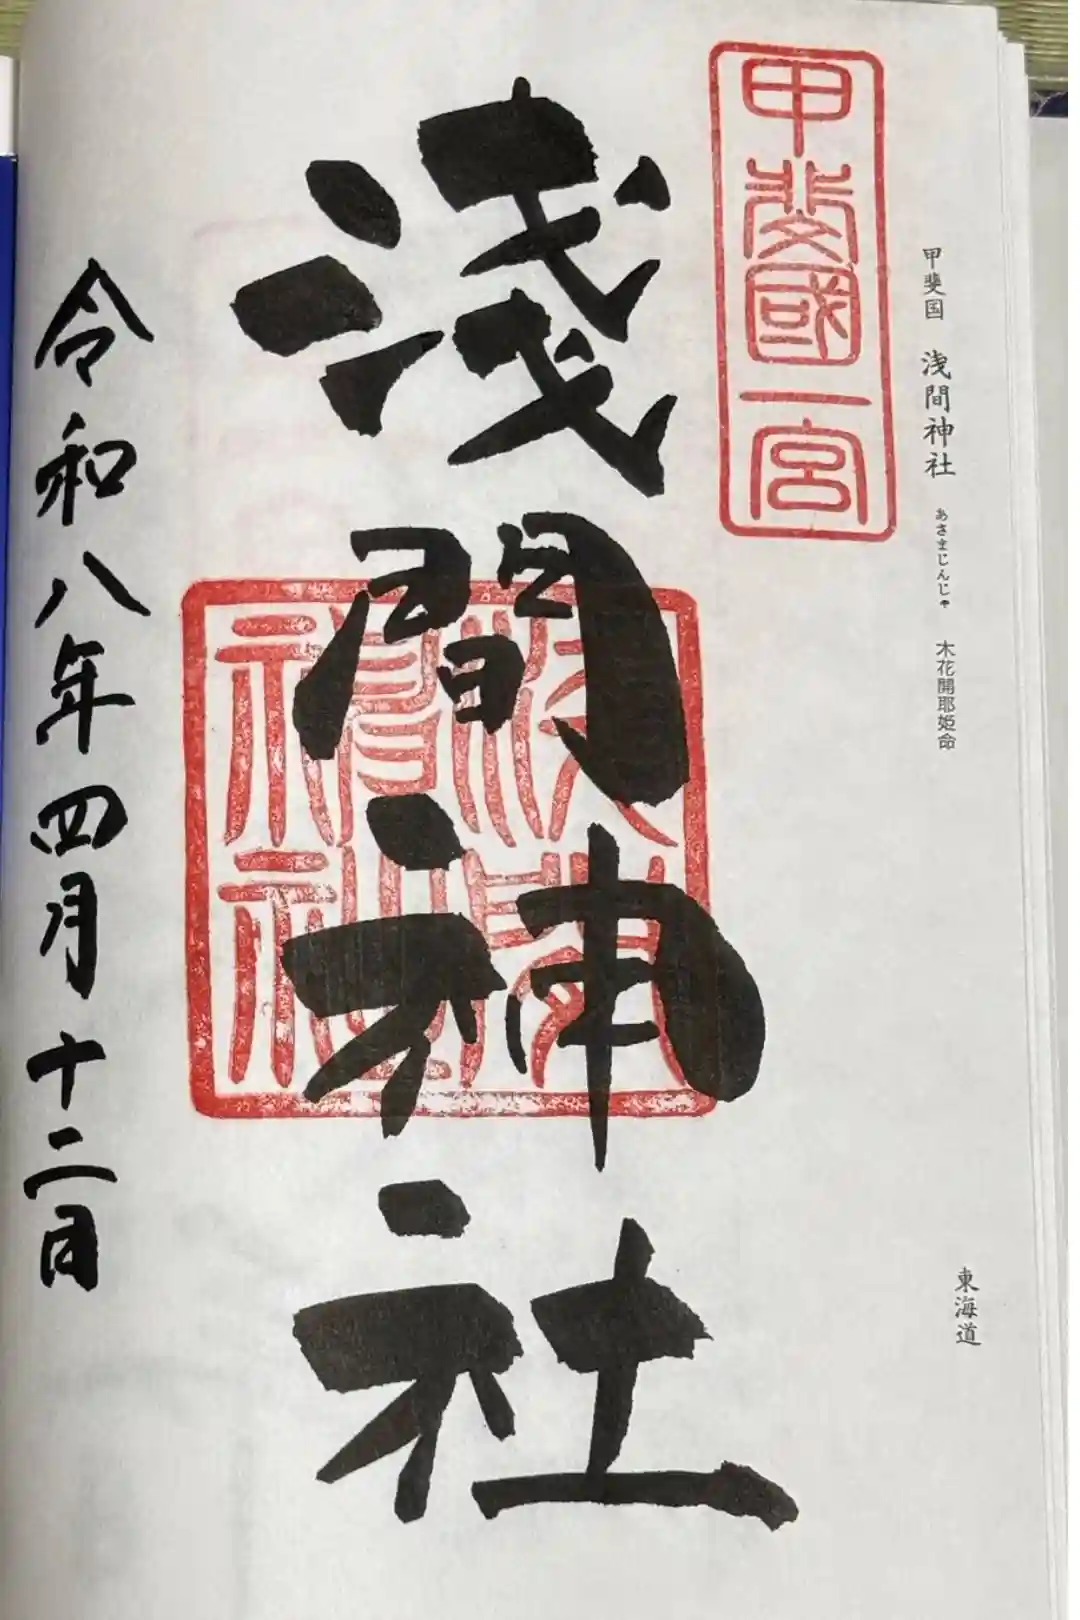 甲斐国 浅間神社 あさまじんじゃ 木花開耶姫命
東海道
甲斐國一宮
浅間神社
令和八年四月十二日